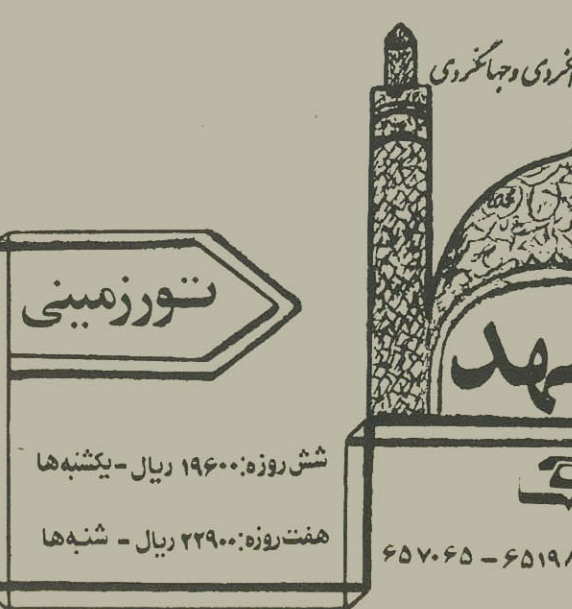 وجهانگردی
تورزمینی
شش روزه:۱۹۶۰۰ ریال -یکشنبه‌ها
هفت‌روزه:۲۲۹۰۰ ریال - شنبه‌ها
۶۵۷۰۶۵ - ۶۵۱۹۸